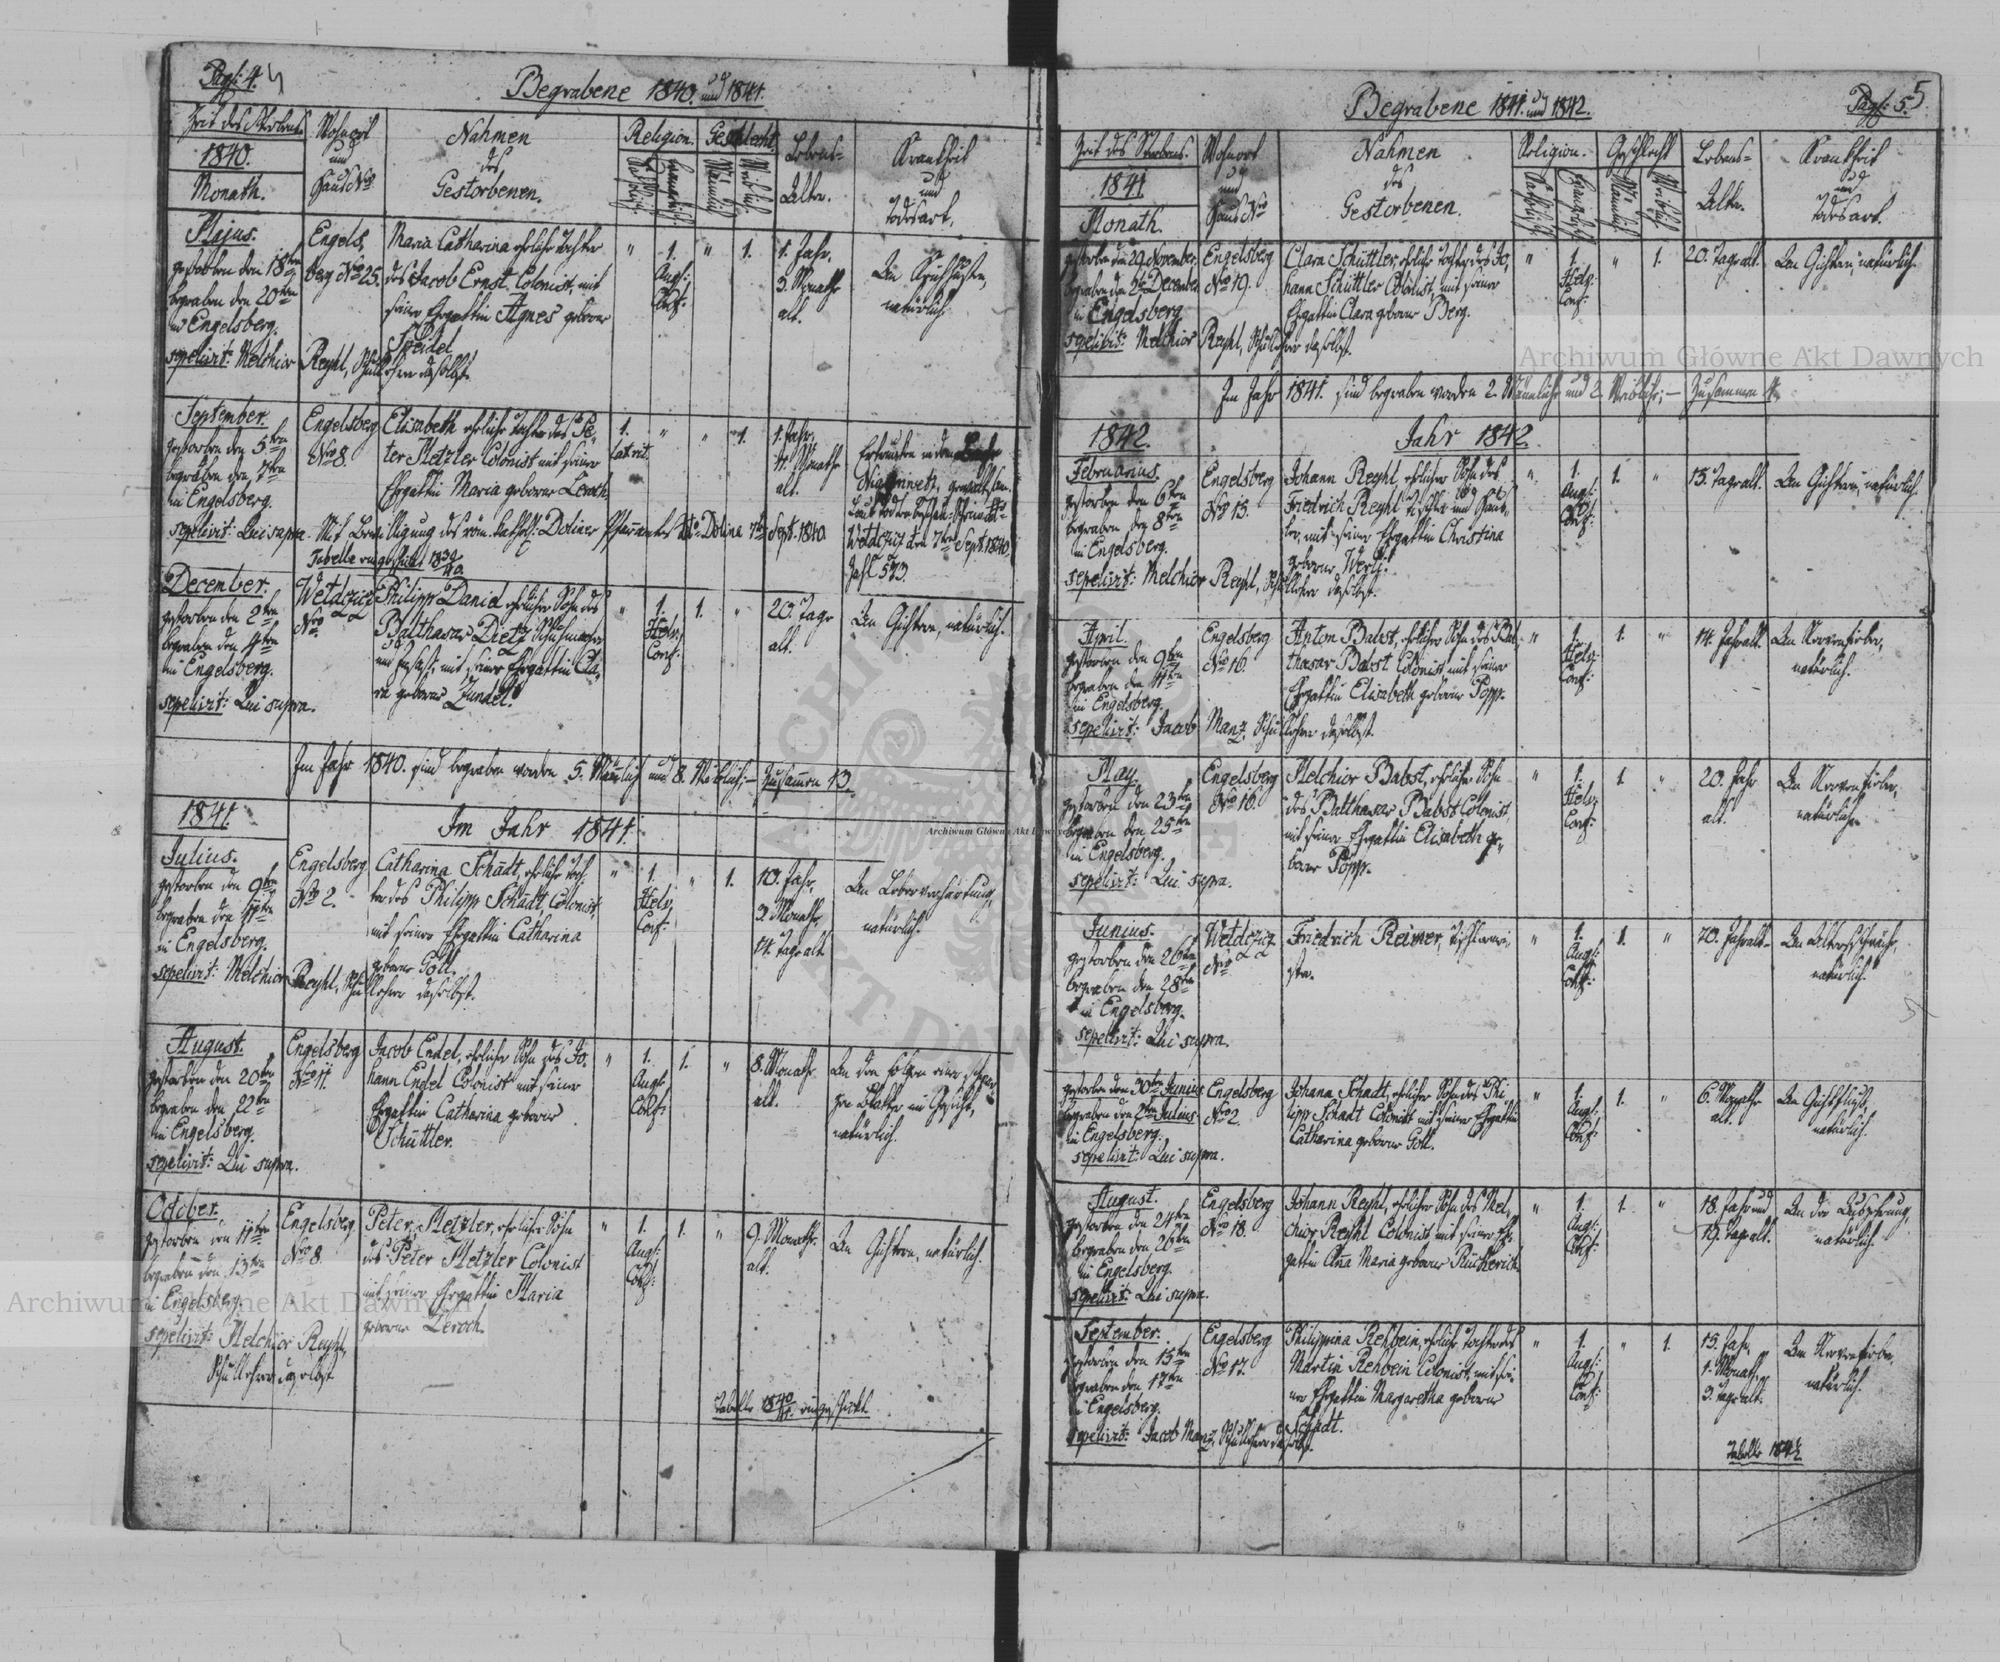 Pag: 4. 4
Begrabene 1840. und 1841.
Zeit des Sterbens.
1840.
Monath.
Wohnort
und
Haus Nro
Nahmen
des
Gestorbenen.
Religion.
Katholisch
Evangelisch
Geschlecht.
Männlich
Weiblich
Lebens-
Alter.
Krankheit
und
Todesart.
Majus.
gestorben den 18ten
begraben den 20ten
in Engelsberg.
sepelivit: Melchior Reyhl, Schullehrer daselbst.
Engels,
berg Nro 25.
Maria Catharina ehliche Tochter
des Jacob Ernst Colonist, mit
seiner Ehegattin Agnes geborne
Speidel
" 1. " 1.
Augs:
Conf:
1. Jahr,
3. Monathe
alt.
An
natürlich.
September.
gestorben den 5ten
begraben den 7ten
in Engelsberg.
Engelsberg
Nro 8.
Elisabeth ehliche Tochter des Pe-
ter Metzler Colonist mit seiner
Ehegattin Maria geborne Leroch
1. " " 1.
lat. rit.
1. Jahr,
11. Monathe
alt.
Ertrunken in dem
gewaltsam.
Laut Todtenbeschau-
Weldzirz den 7ten Sept. 1840.
Zahl 573.
sepelivit: Qui supra. Mit Bewilligung des röm. kathol: Doliner Pfarramtes dto. Dolina 7ten Sept. 1840.
Tabelle eingeschickt 1839/40.
December.
gestorben den 2ten
begraben den 4ten
in Engelsberg.
sepelivit: Qui supra.
Weldzirz
Nro
Philipp Daniel ehlicher Sohn des
Balthasar Dietz Schuhmacher
mit seiner Ehegattin Cla,
ra geborne Zundel.
" 1. 1. "
Helv:
Conf:
20. Tage
alt.
An Gichtern, natürlich.
Im Jahr 1840. sind begraben worden 5. Männlich und 8. Weiblich;- Zusammen 13.
1841.
Im Jahr 1841.
Julius.
gestorben den 9ten
begraben den 11ten
in Engelsberg.
sepelivit: Melchior Reyhl, Schullehrer daselbst.
Engelsberg
Nro 2.
Catharina Schadt, ehliche Toch-
ter des Philipp Schadt, Colonist,
mit seiner Ehegattin Catharina
geborne Goll.
" 1. " 1.
Helv:
Conf:
10. Jahr,
9. Monathe
14. Tage alt
An Leberverhärtung,
natürlich.
August.
gestorben den 20ten
begraben den 22ten
in Engelsberg.
sepelivit: Qui supra.
Engelsberg
Nro 11.
Jacob Endel, ehlicher Sohn des Jo,
hann Endel Colonist mit seiner
Ehegattin Catharina geborne
Schüttler.
" 1. 1. "
Augs:
Conf:
8. Monathe
alt.
An den Folgen einer schwar-
zen Blatter im Gesicht,
natürlich.
October.
gestorben den 11ten
begraben den 13ten
in Engelsberg
sepelivit: Melchior Reyhl,
Schullehrer daselbst
Engelsberg
Nro 8.
Peter Metzler, ehlicher Sohn
des Peter Metzler Colonist
mit seiner Ehegattin Maria
geborne Leroch.
" 1. 1. "
Augs:
Conf:
9. Monathe
alt.
An Gichtern, natürlich.
Tabelle 1840/41. eingeschickt.
Pag: 5. 5
Begrabene 1841. und 1842.
Zeit des Sterbens.
1841
Monath.
Wohnort
und
Haus Nro
Nahmen
des
Gestorbenen.
Religion.
Katholisch
Evangelisch
Geschlecht
Männlich
Weiblich
Lebens-
Alter.
Krankheit
und
Todesart.
gestorben den 29. November,
begraben den 2ten December
in Engelsberg
sepelivit: Melchior Reyhl, Schullehrer daselbst.
Engelsberg
Nro 19.
Clara Schüttler, ehliche Tochter des Jo,
hann Schüttler Colonist, mit seiner
Ehegattin Clara geborne Berg.
" 1. " 1.
Helv:
Conf:
20. Tage alt.
An Gichtern, natürlich.
Im Jahr 1841. sind begraben worden 2. Männliche und 2. Weibliche;- Zusammen 4.
1842.
Jahr 1842.
Februarius.
gestorben den 6ten
begraben den 8ten
in Engelsberg.
sepelivit: Melchior Reyhl, Schullehrer daselbst.
Engelsberg
Nro 15.
Johann Reyhl, ehlicher Sohn des
Friedrich Reyhl Tischler und
mit seiner Ehegattin Christina
geborne Werli.
" 1. 1. "
Augs:
Conf:
15. Tage alt.
An Gichtern, natürlich.
April.
gestorben den 9ten
begraben den 11ten
in Engelsberg.
sepelivit: Jacob Manz, Schullehrer daselbst.
Engelsberg
Nro 16.
Anton Babst, ehlicher Sohn des Bal-
thasar Babst Colonist, mit seiner
Ehegattin Elisabeth geborne Popp.
" 1. 1. "
Helv:
Conf:
14. Jahr alt.
An Nervenfieber,
natürlich.
May.
gestorben den 23ten
begraben den 25ten
in Engelsberg.
sepelivit: Qui supra.
Engelsberg
Nro 16.
Melchior Babst, ehlicher Sohn
des Balthasar Babst Colonist,
mit seiner Ehegattin Elisabeth ge-
borne Popp.
" 1. 1. "
Helv:
Conf:
20. Jahr
alt.
An Nervenfieber,
natürlich.
Junius.
gestorben den 26ten
begraben den 28ten
in Engelsberg.
sepelivit: Qui supra.
Weldzirz
Nro
Friedrich Reimer, Tischlermei,
ster.
" 1. 1. "
Augs:
Conf:
70. Jahr alt.
An Altersschwäche,
natürlich.
gestorben den 30ten Junius
begraben den 2ten Julius
in Engelsberg.
sepelivit: Qui supra.
Engelsberg
Nro 2.
Johann Schadt, ehlicher Sohn des Phi
lipp Schadt Colonist mit seiner Ehegattin
Catharina geborne Goll.
" 1. 1. "
Augs:
Conf:
6. Monathe
alt.
An Gichtfluß,
natürlich.
August.
gestorben den 24ten
begraben den 26ten
in Engelsberg.
sepelivit: Qui supra.
Engelsberg
Nro 18.
Johann Reyhl, ehlicher Sohn des Mel,
chior Reyhl Colonist, mit seiner Ehe-
gattin Ana Maria geborne Rückerich
" 1. 1. "
Augs:
Conf:
18. Jahr und
19. Tage alt.
An der Auszehrung,
natürlich.
September.
gestorben den 15ten
begraben den 17ten
in Engelsberg.
sepelivit: Jacob Manz, Schullehrer daselbst.
Engelsberg
Nro 17.
Philippina Rehbein, ehliche Tochter des
Martin Rehbein Colonist, mit sei-
ner Ehegattin Margaretha geborne
Schadt.
" 1. " 1.
Augs:
Conf:
15. Jahr,
1. Monath,
3. Tage alt.
An Nervenfieber,
natürlich.
Tabelle 1841/2
Archiwum Główne Akt Dawnych
Archiwum Główne Akt Dawnych
Archiwum Główne Akt Dawnych